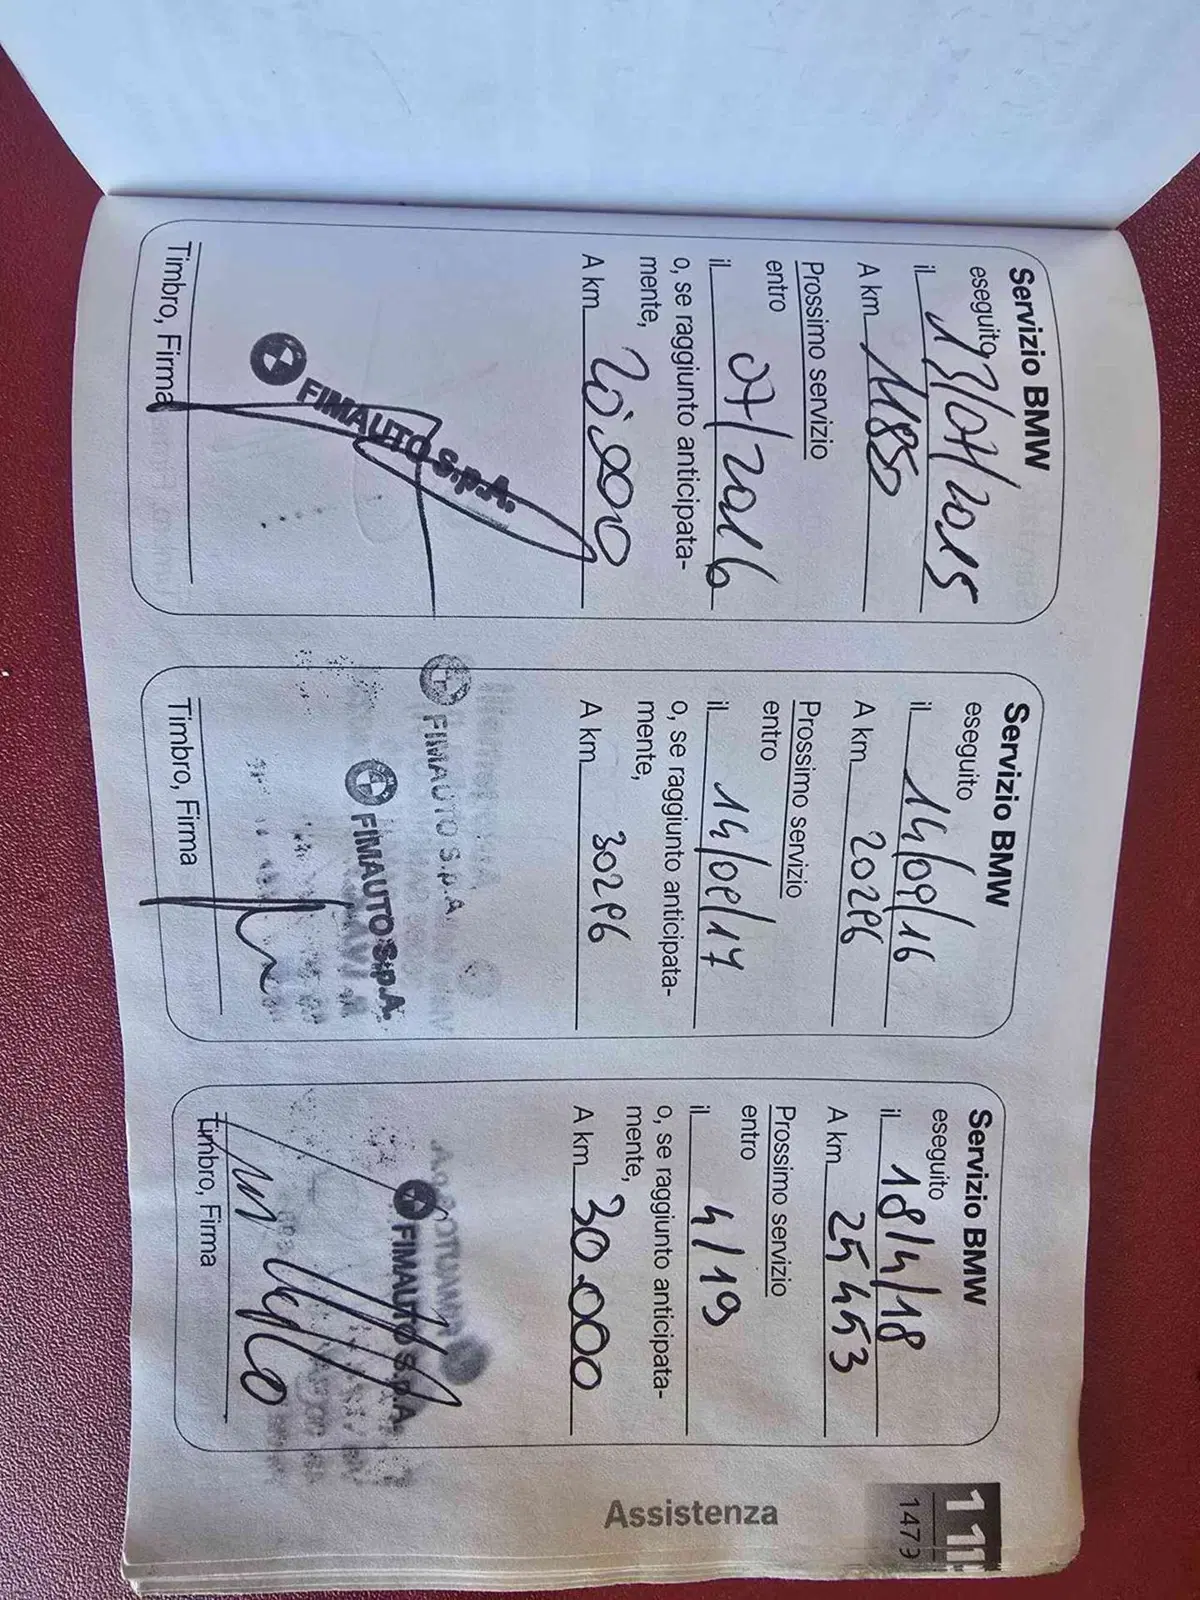 Servizio BMW
eseguito
il 13/07/2015
A km 11850
Prossimo servizio
entro
il 07/2016
o, se raggiunto anticipata-
mente,
A km 20.000
FIMAUTO S.p.A.
Timbro, Firma
Servizio BMW
eseguito
il 14/09/16
A km 20296
Prossimo servizio
entro
il 14/09/17
o, se raggiunto anticipata-
mente,
A km 30296
FIMAUTO S.p.A.
FIMAUTO S.p.A.
Timbro, Firma
Servizio BMW
eseguito
il 18/4/18
A km 25453
Prossimo servizio
entro
il 4/19
o, se raggiunto anticipata-
mente,
A km 30.000
FIMAUTO S.p.A.
Timbro, Firma
Assistenza
111
1479